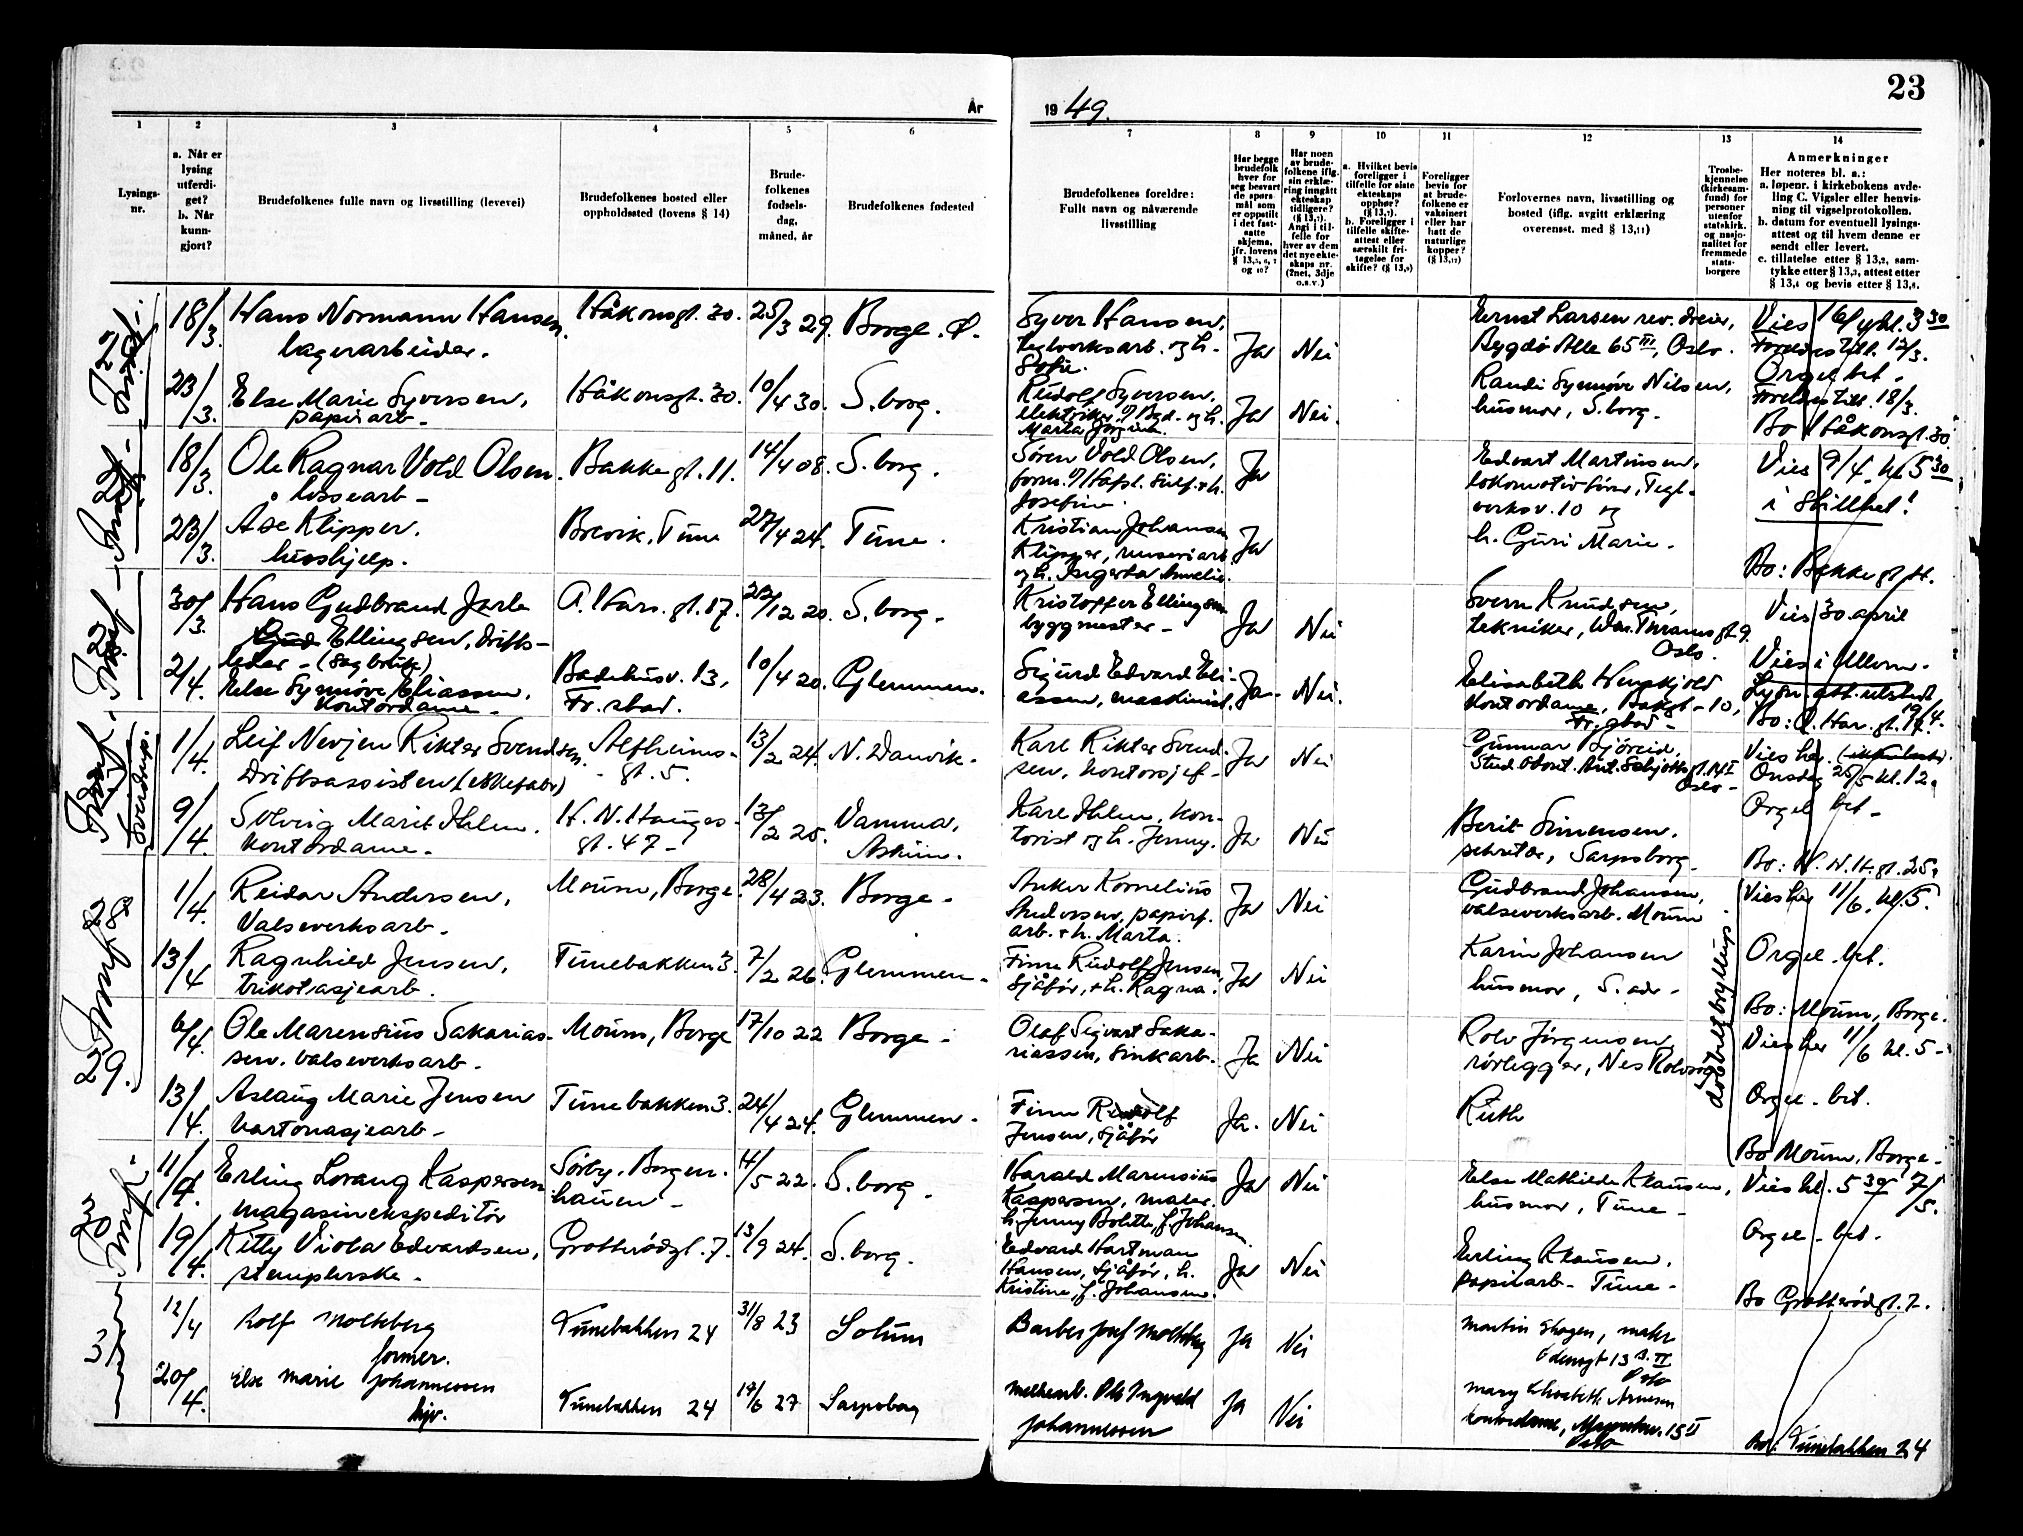 23
År
19 49.
1
Lysings-
nr.
2
a. Når er
lysing
utferdi-
get?
b. Når
kunn-
gjort?
3
Brudefolkenes fulle navn og livsstilling (levevei)
4
Brudefolkenes bosted eller
oppholdssted (lovens § 14)
5
Brude-
folkenes
fødsels-
dag,
måned, år
6
Brudefolkenes fødested
7
Brudefolkenes foreldre:
Fullt navn og nåværende
livsstilling
8
Har begge
brudefolk
hver for
seg besvart
de spørs-
mål som
er oppstilt
i det fast-
satte
skjema,
jfr. lovens
9
Har noen
av brude-
folkene iflg.
sin erklæ-
ring inngått
ekteskap
tidligere?
(§ 13,7).
Angi i til-
felle for
hver av dem
det nye ekte-
skaps nr.
(2net, 3dje
o.s.v.)
10
a. Hvilket bevis
foreligger i
tilfelle for siste
ekteskaps
opphør?
(§ 13,7).
b. Foreligger i
tilfelle skifte-
attest eller
særskilt fri-
tagelse for
skifte? (§ 13,9)
11
Foreligger
bevis for
at brude-
folkene er
vaksinert
eller har
hatt de
naturlige
kopper?
12
Forlovernes navn, livsstilling og
bosted (iflg. avgitt erklæring
overensst. med § 13,11)
13
Trosbe-
kjennelse
(kirkesam-
fund) for
personer
utenfor
statskirk.
og nasjo-
nalitet for
fremmede
stats-
borgere
14
Anmerkninger
Her noteres bl. a.:
a. løpenr. i kirkebokens avde-
ling C. Vigsler eller henvis-
ning til vigselprotokollen.
b. datum for eventuell lysings-
attest og til hvem denne er
sendt eller levert.
c. tillatelse etter § 13,2, sam-
tykke etter § 13,3, attest etter
§ 13,4 og bevis etter § 13,8.
18/3. Hans Normann Hansen, Håkonsgt. 30. 25/3 29. Borge. Ø.
lagerarbeider.
Syver Hansen,
teglverksarb. og h.
Sofie.
Ja Nei
Ernst Larsen rev. dreier,
Bygdø Alle 65 III, Oslo.
Vies kl. 3 30
Foreldres till. 12/3.
Orgel bet.
23/3. Else Marie Syversen, Håkonsgt. 30. 10/4 30. S.borg.
papirarb.
Rudolf Syversen,
og h.
Ja Nei.
Randi Synnøve Nilsen,
husmor, S.borg.
Foreldres till. 18/3.
Bo Håkonsgt. 30.
18/3. Ole Ragnar Vold Olsen. Bakkegt. 11. 14/4 08. S.borg.
lossearb
Søren Vold Olsen,
Josefine.
Ja
Edvart Martinsen,
lokomotivfører, Tegl-
verksv. 10 og
h. Guri Marie.
Vies 9/4. kl. 5 30
i stillhet!
23/3. Åse Klipper. Brevik, Tune 27/4 24. Tune.
hushjelp.
Kristian Johansen
Klipper,
og h. Ingerta Amelie.
Ja
Bo: Bakkegt 11.
30/3. Hans Gudbrand Jarle A. Hars. gt. 17. 23/12 20. S.borg.
Ellingsen, drifts-
leder - (Sagbruk)
Kristoffer Ellingsen
byggmester -
Ja Nei
Svern Knudsen,
tekniker, Wm. Thranesgt 9.
Oslo.
Vies 30. april
Vies i Ullern.
2/4. Else Synnøve Eliassen, Badehusv. 13, 10/4 20. Glemmen.
Kontordame - Fr.stad.
Sigurd Edvard Eli-
assen, maskinist.
Ja Nei.
Elisabeth
Kontordame,
Fr.stad -
Lysn. att. utstedt
19/4.
Bo: A. Har. gt. 17.
1/4. Leif Nevjen Rikter Svendsen, Alfheims- 13/2 24. N. Danvik.
Driftsassistent (eskefabr) gt. 5.
Karl Rikter Svend-
sen, kontorsjef -
Ja Nei
Gunnar Sjöreid,
Stud.
Oslo -
Vies her.
Onsdag 25/5 kl. 12.
Orgel bet -
9/4. Solveig Marit Ihlen. H. N. Hauges- 13/2 25. Vamma,
Kontordame. gt. 47 - Askim.
Karl Ihlen, kon-
torist og h. Jenny.
Ja Nei
Berit Simensen.
sekretær, Sarpsborg
Bo: H. N. H. gt. 25.
28
1/4. Reidar Andersen, Moum, Borge. 28/4 23. Borge -
Valseverksarb.
Anker Kornelius
Andersen, papirf.
arb. + h. Marta.
Ja Nei
Gudbrand Johansen,
valseverksarb. Moum
Vies her 11/6. kl. 5.
13/4 Ragnhild Jensen, Tunebakken 3. 7/2 26. Glemmen -
trikotasjearb.
Finn Rudolf Jensen
sjåfør, + h. Ragna.
Ja Nei
Karin Johansen
husmor, S. adr -
Orgel - bet.
Bo: Moum, Borge.
dobbeltbryllup
29.
6/4. Ole Marensius Sakarias- Moum, Borge 17/10 22 Borge -
sen. valseverksarb.
Olaf Sigvart Saka-
riassen, sinkarb.
Ja Nei
Rolv Jörgensen,
rørlegger, Nes
Vies her 11/6 kl. 5 -
13/4. Aslaug Marie Jensen Tunebakken 3. 24/4 24. Glemmen -
kartonasjearb -
Finn Rudolf
Jensen, sjåfør
Ja. Nei
Ruth
Orgel - bet.
Bo Moum, Borge -
30
11/4. Erling Lorang Kaspersen Sørby, Borgen- 14/5 22. S.borg.
magasinekspeditør hauen -
Harald Marensius
Kaspersen, maler.
h. Jenny Bolette, f. Johansen.
Ja Nei
Else Mathilde Klausen,
husmor, Tune -
Vies kl. 5 30 7/5.
Orgel - bet.
19/4. Kitty Viola Edvardsen, Grotterødgt. 7. 13/9 24. S.borg.
stemplerske.
Edvard Hartman
Hansen, sjåfør, h.
Kristine, f. Johansen.
Ja Nei
Erling Klausen,
papirarb - Tune -
Bo Grotterødgt. 7.
31
12/4 Rolf Molteberg Tunebakken 24 31/8 23 Solum
former.
Barber Josef Molteberg Ja Nei
Martin Skogen, maler
Odensgt 13 B. II
Oslo
20/4. Else Marie Johannessen Tunebakken 24 14/6 27 Sarpsborg
hjv.
Ole Ingvald
Johannessen
Ja Nei
Mary Elisabeth Arnesen
kontordame, 15 II
Oslo
Bo: Tunebakken 24